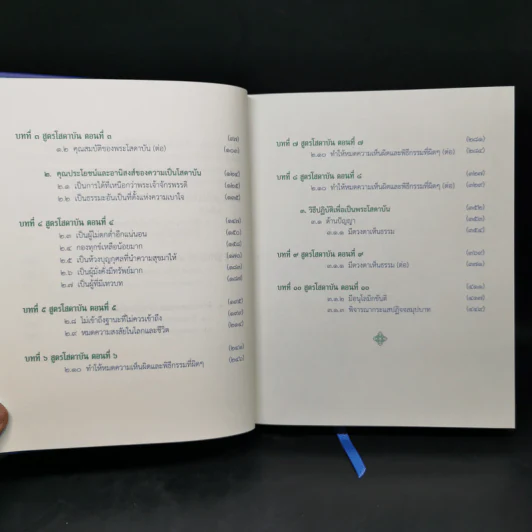 บทที่ ๓ สูตรโสดาบัน ตอนที่ ๓
๑.๒ คุณสมบัติของพระโสดาบัน (ต่อ)
๒. คุณประโยชน์และอานิสงส์ของความเป็นโสดาบัน
๒.๑ เป็นการได้ที่เหนือกว่าพระเจ้าจักรพรรดิ
๒.๒ เป็นธรรมะอันเป็นที่ตั้งแห่งความเบาใจ
บทที่ ๔ สูตรโสดาบัน ตอนที่ ๔
๒.๓ เป็นผู้ไม่ตกต่ำอีกแน่นอน
๒.๔ กองทุกข์เหลือน้อยมาก
๒.๕ เป็นห้วงบุญกุศลที่นำความสุขมาให้
๒.๖ เป็นผู้มั่งคั่งมีทรัพย์มาก
๒.๗ เป็นผู้ที่มีเทวบท
บทที่ ๕ สูตรโสดาบัน ตอนที่ ๕
๒.๘ ไม่เข้าถึงฐานะที่ไม่ควรเข้าถึง
๒.๙ หมดความสงสัยในโลกและชีวิต
บทที่ ๖ สูตรโสดาบัน ตอนที่ ๖
๒.๑๐ ทำให้หมดความเห็นผิดและพิธีกรรมที่ผิดๆ
บทที่ ๗ สูตรโสดาบัน ตอนที่ ๗
๒.๑๐ ทำให้หมดความเห็นผิดและพิธีกรรมที่ผิดๆ (ต่อ)
บทที่ ๘ สูตรโสดาบัน ตอนที่ ๘
๒.๑๐ ทำให้หมดความเห็นผิดและพิธีกรรมที่ผิดๆ (ต่อ)
๓. วิธีปฏิบัติเพื่อเป็นพระโสดาบัน
๓.๑ ด้านปัญญา
๓.๑.๑ มีดวงตาเห็นธรรม
บทที่ ๙ สูตรโสดาบัน ตอนที่ ๙
๓.๑.๑ มีดวงตาเห็นธรรม (ต่อ)
บทที่ ๑๐ สูตรโสดาบัน ตอนที่ ๑๐
๓.๑.๒ มีอนุโลมิกขันติ
๓.๑.๓ พิจารณากระแสปฏิจจสมุปบาท